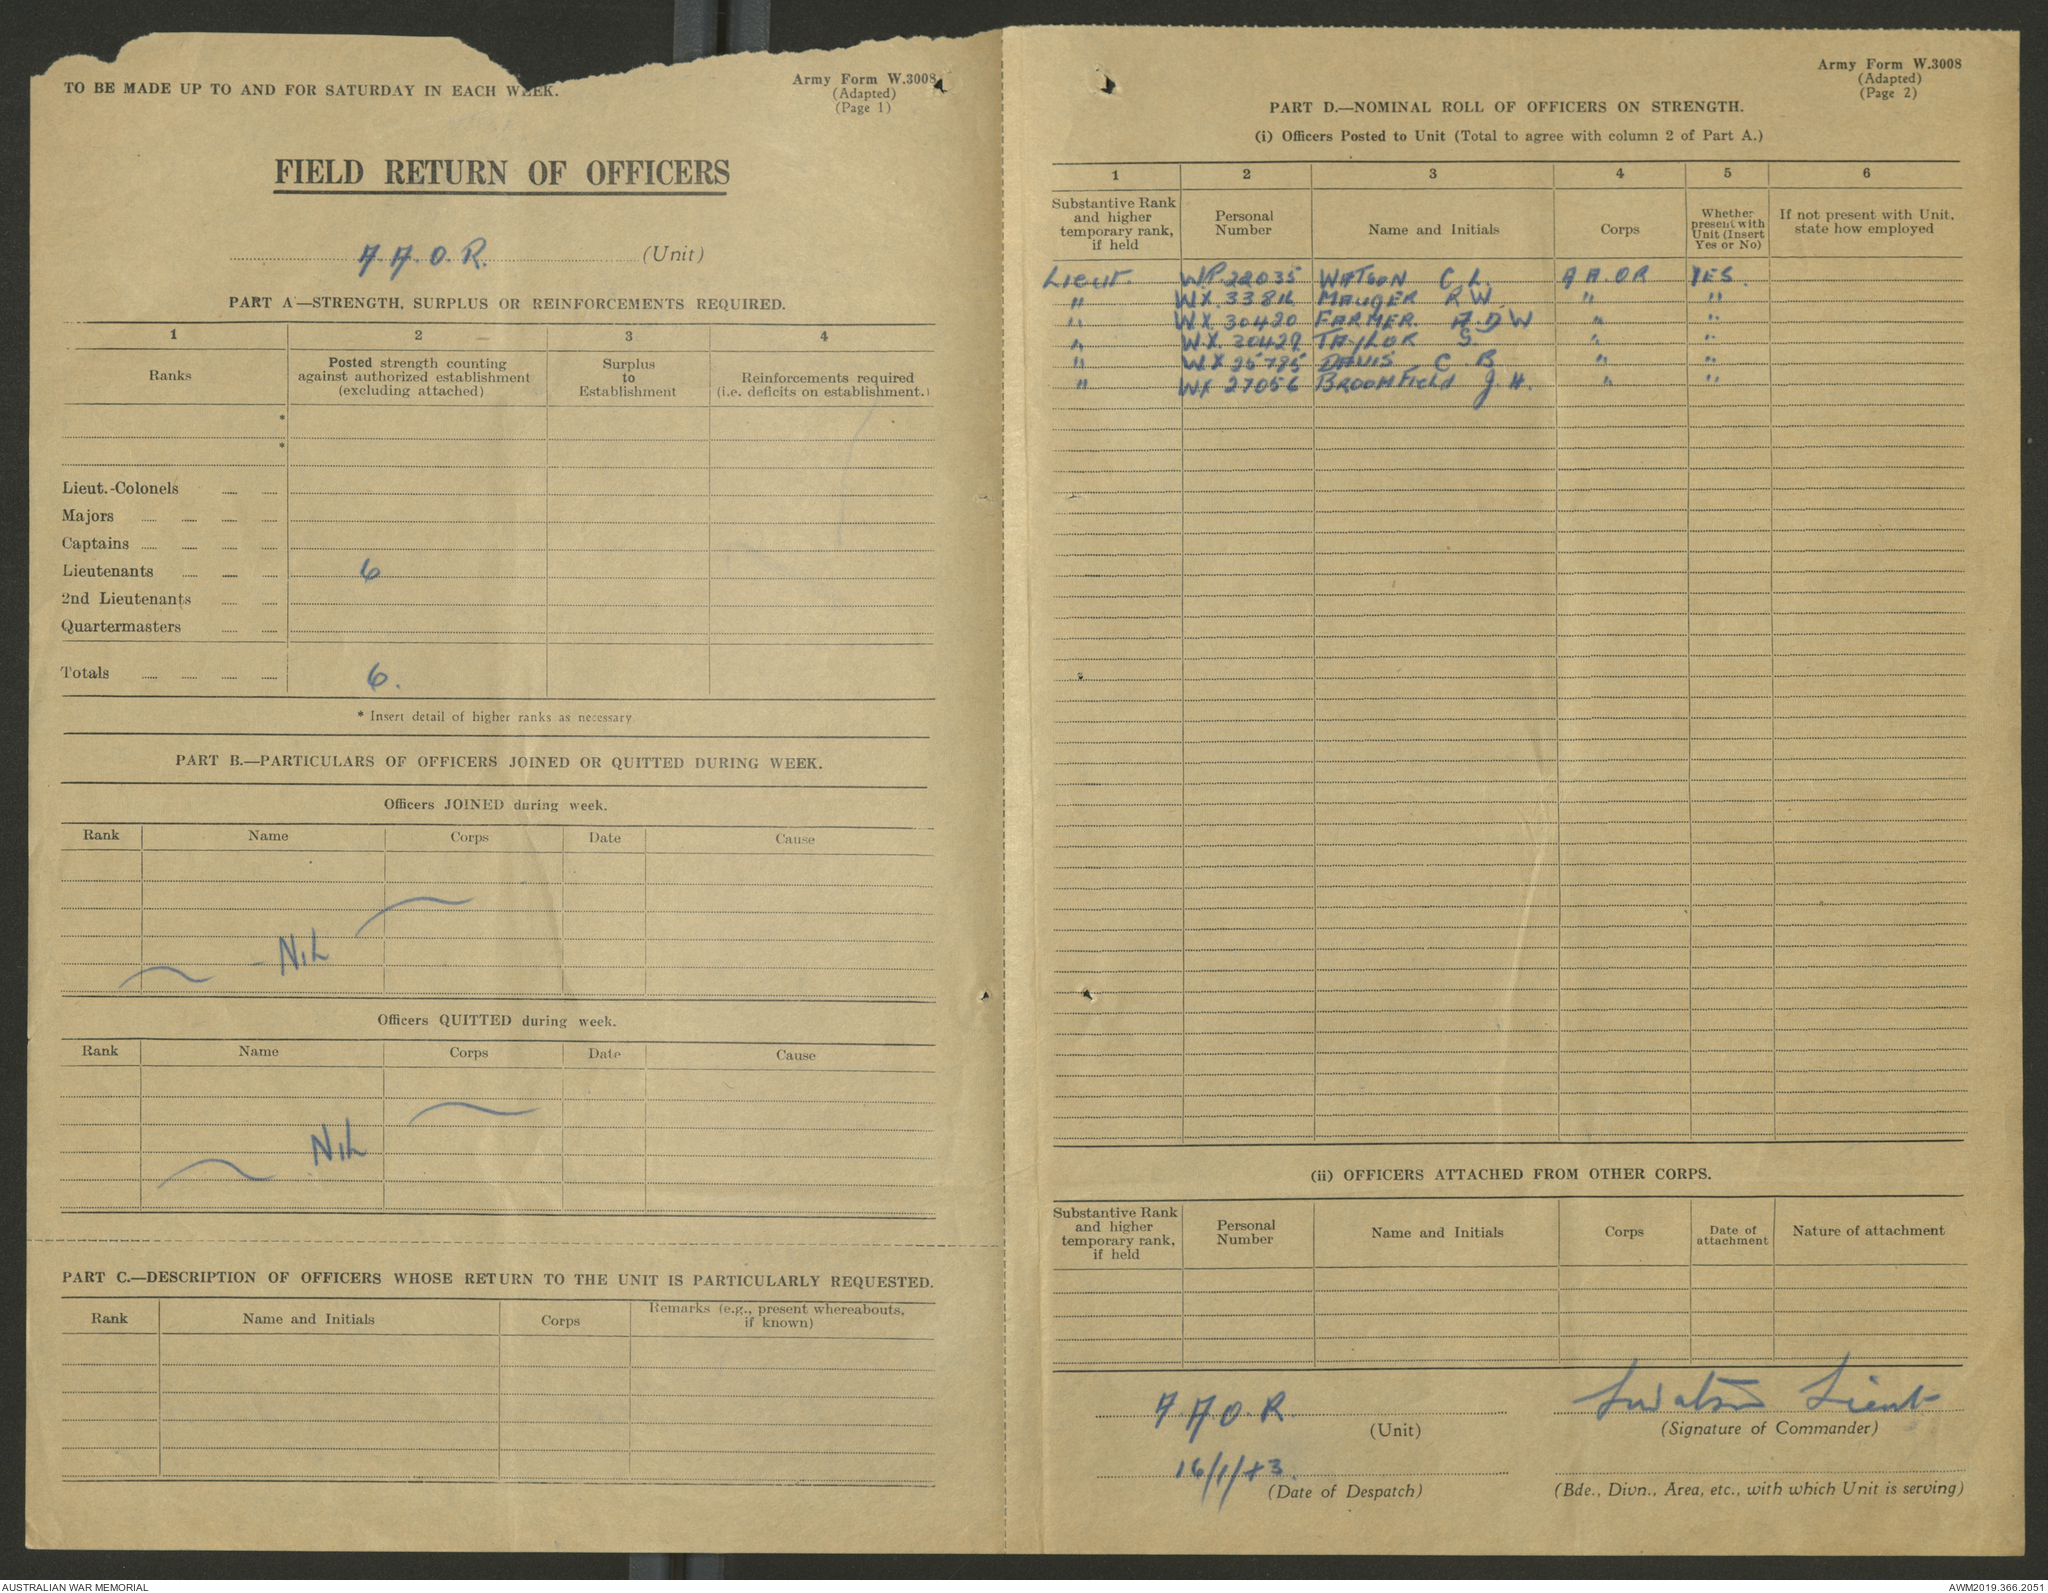 TO BE MADE UP TO AND FOR SATURDAY IN EACH WEEK.
Army Form W.3008
(Adapted)
(Page 1)
FIELD RETURN OF OFFICERS
A.A.O.R. (Unit)
PART A—STRENGTH, SURPLUS OR REINFORCEMENTS REQUIRED.
1 2 3 4
Ranks
Posted strength counting against authorized establishment (excluding attached)
Surplus to Establishment
Reinforcements required (i.e. deficits on establishment.)
*
*
Lieut.-Colonels
Majors
Captains
Lieutenants 6
2nd Lieutenants
Quartermasters
Totals 6.
* Insert detail of higher ranks as necessary
PART B.—PARTICULARS OF OFFICERS JOINED OR QUITTED DURING WEEK.
Officers JOINED during week.
Rank Name Corps Date Cause
- NIL
Officers QUITTED during week.
Rank Name Corps Date Cause
NIL
PART C.—DESCRIPTION OF OFFICERS WHOSE RETURN TO THE UNIT IS PARTICULARLY REQUESTED.
Rank Name and Initials Corps Remarks (e.g., present whereabouts, if known)
Army Form W.3008
(Adapted)
(Page 2)
PART D.—NOMINAL ROLL OF OFFICERS ON STRENGTH.
(i) Officers Posted to Unit (Total to agree with column 2 of Part A.)
1 2 3 4 5 6
Substantive Rank and higher temporary rank, if held
Personal Number
Name and Initials
Corps
Whether present with Unit (Insert Yes or No)
If not present with Unit, state how employed
Lieut. WP.22035 WATSON C L. A A.OR YES.
" WX.33816 MAUGER R W. " "
" WX.30420 FARMER. A.D.W " "
" WX.30429 TAYLOR S. " "
" WX 25785 DAVIS C.B " "
" WX 27056 BROOMFIELD J.H. " "
(ii) OFFICERS ATTACHED FROM OTHER CORPS.
Substantive Rank and higher temporary rank, if held
Personal Number
Name and Initials
Corps
Date of attachment
Nature of attachment
A A.O.R. (Unit)
Watson Lieut
(Signature of Commander)
16/1/43.
(Date of Despatch)
(Bde., Divn., Area, etc., with which Unit is serving)
AUSTRALIAN WAR MEMORIAL
AWM2019.366.2051